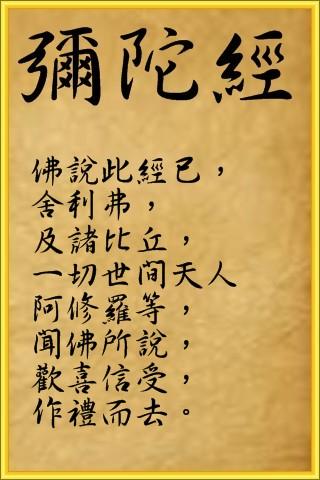 彌陀經
佛說此經已，
舍利弗，
及諸比丘，
一切世間天人
阿修羅等，
聞佛所說，
歡喜信受，
作禮而去。